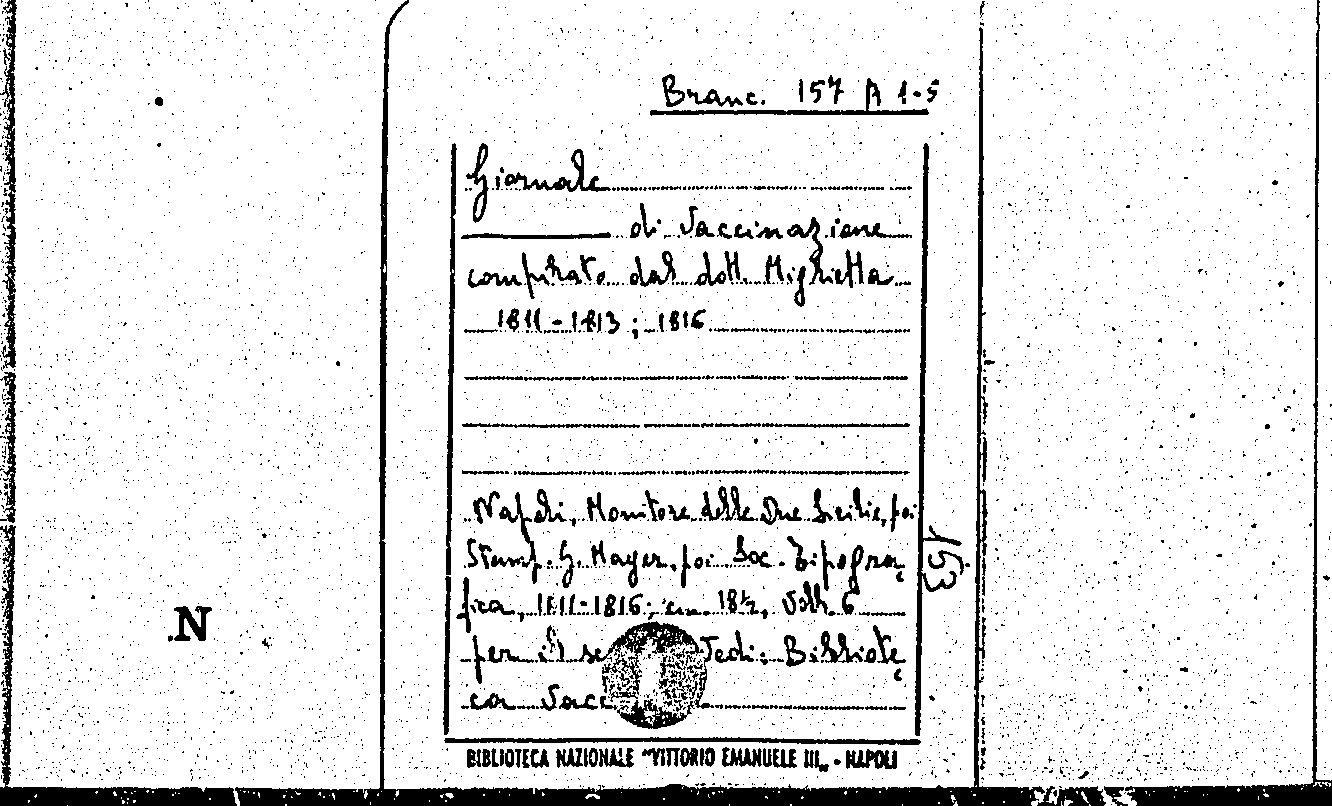 Branc. 157 A 1-5
Giornale
di Vaccinazione
compilato dal dott. Miglietta
1811-1813; 1816
Napoli, Monitore delle Due Sicilie, poi
Stamp. G. Mayer, poi Soc. Tipogra
fica, 1811-1816; cm. 18½, Voll. 6
per il se Vedi: Bibliote
ca Vacc
193
N
BIBLIOTECA NAZIONALE "VITTORIO EMANUELE III„ - NAPOLI